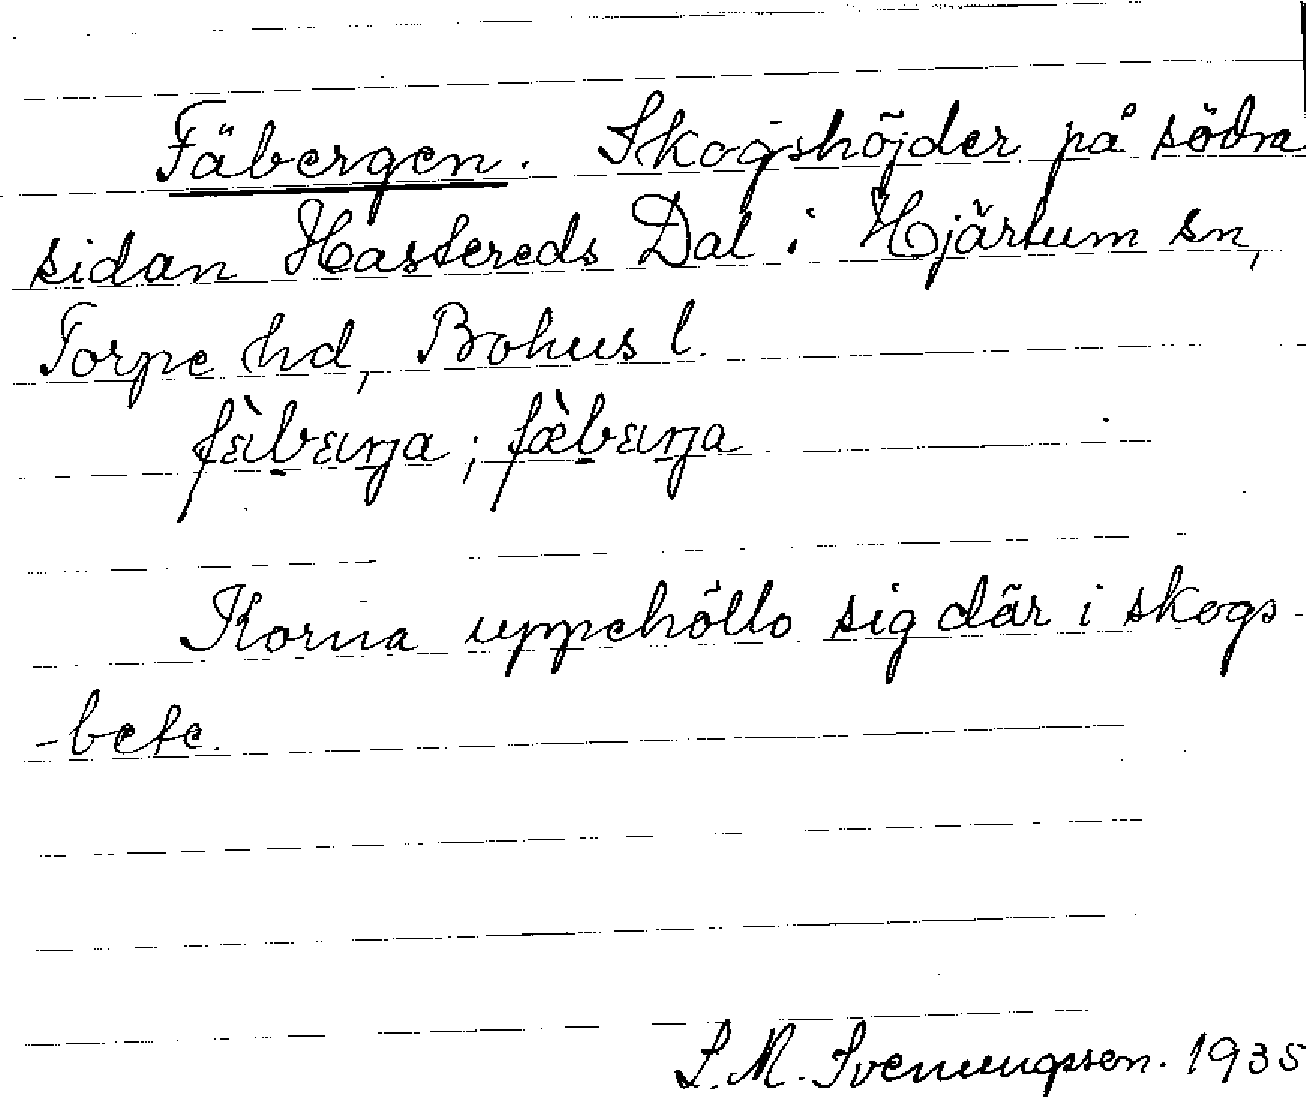 Fäbergen. Skogshöjder på södra
sidan Hastereds Dal i Hjärtum sn,
Torpe hd, Bohus l.
Korna uppehöllo sig där i skogs-
-bete.
S. M. Svenungsson. 1935